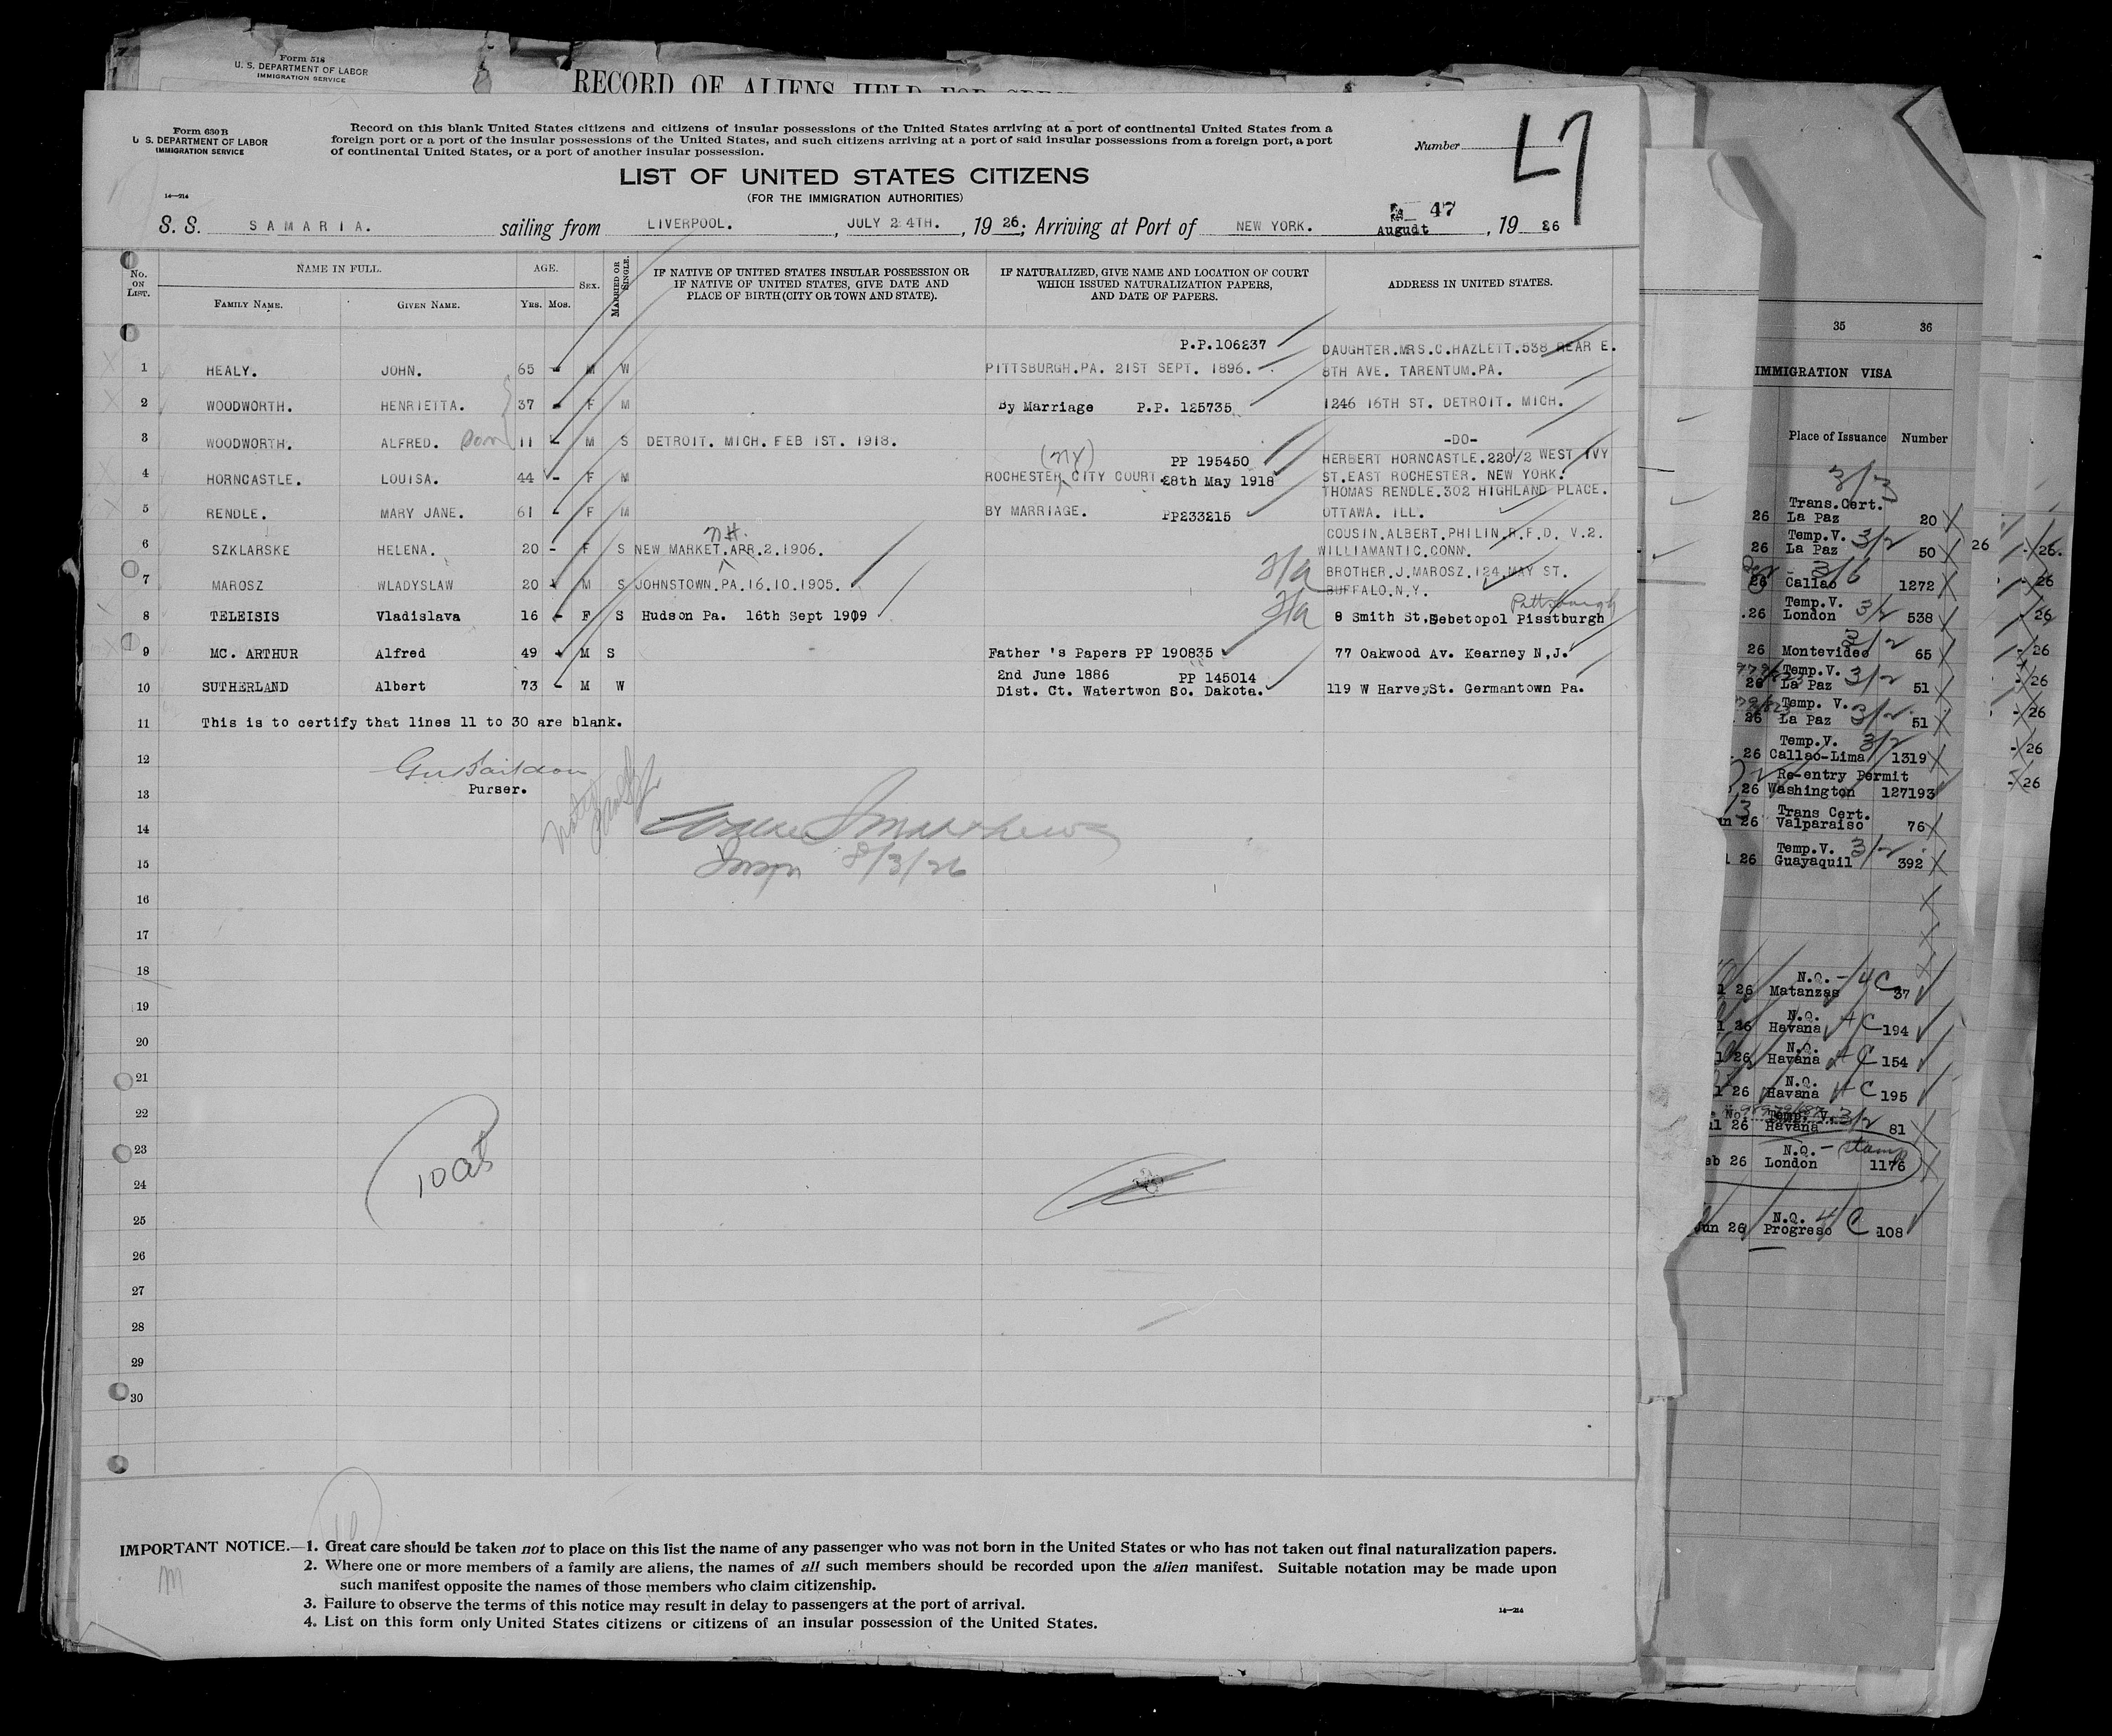 Form 518
U. S. DEPARTMENT OF LABOR
IMMIGRATION SERVICE
RECORD OF ALIENS HELD FOR
Form 630 B
U. S. DEPARTMENT OF LABOR
IMMIGRATION SERVICE
14—214
Record on this blank United States citizens and citizens of insular possessions of the United States arriving at a port of continental United States from a
foreign port or a port of the insular possessions of the United States, and such citizens arriving at a port of said insular possessions from a foreign port, a port
of continental United States, or a port of another insular possession.
Number
47
LIST OF UNITED STATES CITIZENS
(FOR THE IMMIGRATION AUTHORITIES)
47
S. S. SAMARIA. sailing from LIVERPOOL. , JULY 24TH. , 19 26; Arriving at Port of NEW YORK. Augudt , 19 26
No. ON LIST. NAME IN FULL. AGE. SEX. MARRIED OR SINGLE. IF NATIVE OF UNITED STATES INSULAR POSSESSION OR IF NATIVE OF UNITED STATES, GIVE DATE AND PLACE OF BIRTH (CITY OR TOWN AND STATE). IF NATURALIZED, GIVE NAME AND LOCATION OF COURT WHICH ISSUED NATURALIZATION PAPERS, AND DATE OF PAPERS. ADDRESS IN UNITED STATES.
FAMILY NAME. GIVEN NAME. YRS. MOS.
P.P.106237 DAUGHTER.MRS.C.HAZLETT.538 REAR E.
1 HEALY. JOHN. 65 - M W PITTSBURGH.PA. 21ST SEPT. 1896. 8TH AVE. TARENTUM.PA.
2 WOODWORTH. HENRIETTA. 37 - F M By Marriage P.P. 125735 1246 16TH ST. DETROIT. MICH.
3 WOODWORTH. ALFRED. Son 11 - M S DETROIT. MICH. FEB 1ST. 1918. -DO-
(NY) PP 195450 HERBERT HORNCASTLE.220½ WEST IVY
4 HORNCASTLE. LOUISA. 44 - F M ROCHESTER CITY COURT 28th May 1918 ST.EAST ROCHESTER. NEW YORK.
THOMAS RENDLE.302 HIGHLAND PLACE.
5 RENDLE. MARY JANE. 61 - F M BY MARRIAGE. PP233215 OTTAWA. ILL.
N.H. COUSIN.ALBERT.PHILIN.R.F.D. V.2.
6 SZKLARSKE HELENA. 20 - F S NEW MARKET.APR.2.1906. WILLIAMANTIC.CONN.
BROTHER.J.MAROSZ.124.MAY ST.
7 MAROSZ WLADYSLAW 20 - M S JOHNSTOWN.PA.16.10.1905. BUFFALO.N.Y.
Pittsburgh
8 TELEISIS Vladislava 16 - F S Hudson Pa. 16th Sept 1909 8 Smith St,Sebetopol Pisstburgh
9 MC. ARTHUR Alfred 49 - M S Father 's Papers PP 190835 77 Oakwood Av. Kearney N,J.
2nd June 1886 PP 145014
10 SUTHERLAND Albert 73 - M W Dist. Ct. Watertwon So. Dakota. 119 W HarveySt. Germantown Pa.
11 This is to certify that lines 11 to 30 are blank.
12
Purser.
13
14 Matthews
15 Insp 8/3/26
16
17
18
19
20
21
22
23
24
25
26
27
28
29
30
IMPORTANT NOTICE.—1. Great care should be taken not to place on this list the name of any passenger who was not born in the United States or who has not taken out final naturalization papers.
2. Where one or more members of a family are aliens, the names of all such members should be recorded upon the alien manifest. Suitable notation may be made upon
such manifest opposite the names of those members who claim citizenship.
3. Failure to observe the terms of this notice may result in delay to passengers at the port of arrival.
4. List on this form only United States citizens or citizens of an insular possession of the United States.
14—214
35 36
IMMIGRATION VISA
Place of Issuance Number
3/3
Trans.Cert.
26 La Paz 20
Temp.V. 3/2
26 La Paz 50
3/6
26 Callao 1272
Temp.V. 3/2
.26 London 538
3/2
26 Montevideo 65
Temp.V. 3/2
26 La Paz 51
Temp. V. 3/2
26 La Paz 51
Temp.V. 3/2
26 Callao-Lima 1319
Re-entry Permit
26 Washington 127193
Trans Cert.
26 Valparaiso 76
Temp.V. 3/2
26 Guayaquil 392
N.Q. - 4C
26 Matanzas 37
N.Q. 4C
26 Havana 194
N.Q. 4C
26 Havana 154
N.Q. 4C
26 Havana 195
Temp. V. 3/2
26 Havana 81
N.Q. - stamp
eb 26 London 1176
N.Q. 4C
un 26 Progreso 108